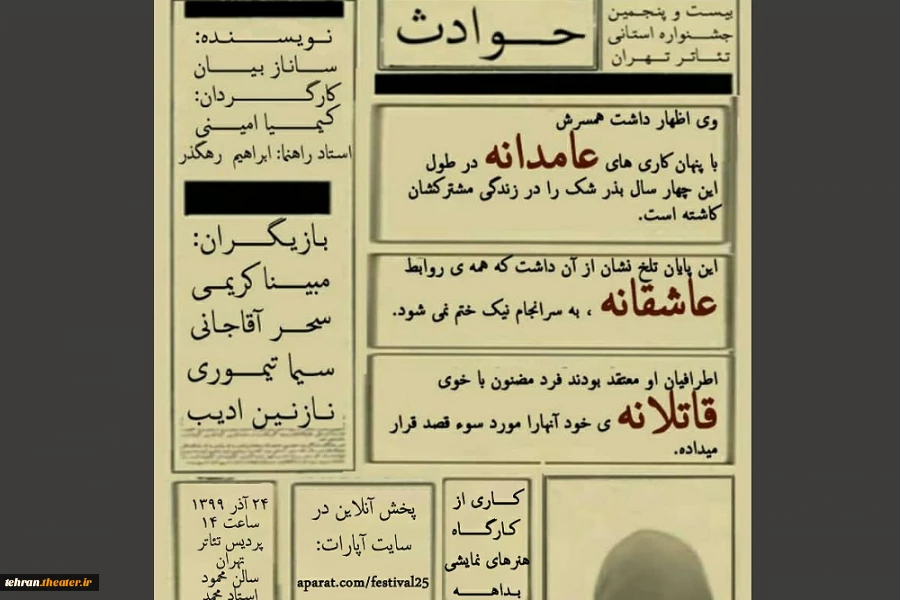 بیست و پنجمین
جشنواره استانی
تئاتر تهران
حوادث
وی اظهار داشت همسرش
با پنهان کاری های عامدانه در طول
این چهار سال بذر شک را در زندگی مشترکشان
کاشته است.
این پایان تلخ نشان از آن داشت که همه ی روابط
عاشقانه ، به سرانجام نیک ختم نمی شود.
اطرافیان او معتقد بودند فرد مضنون با خوی
قاتلانه ی خود آنهارا مورد سوء قصد قرار
میداده.
نویسنده:
ساناز بیان
کارگردان:
کیمیا امینی
استاد راهنما: ابراهیم رهگذر
بازیگران:
مبینا کریمی
سحر آقاجانی
سیما تیموری
نازنین ادیب
کاری از
کارگاه
هنرهای نمایشی
بداهه
پخش آنلاین در
سایت آپارات:
aparat.com/festival25
۲۴ آذر ۱۳۹۹
ساعت ۱۴
پردیس تئاتر
تهران
سالن محمود
استاد محمد
tehran.theater.ir